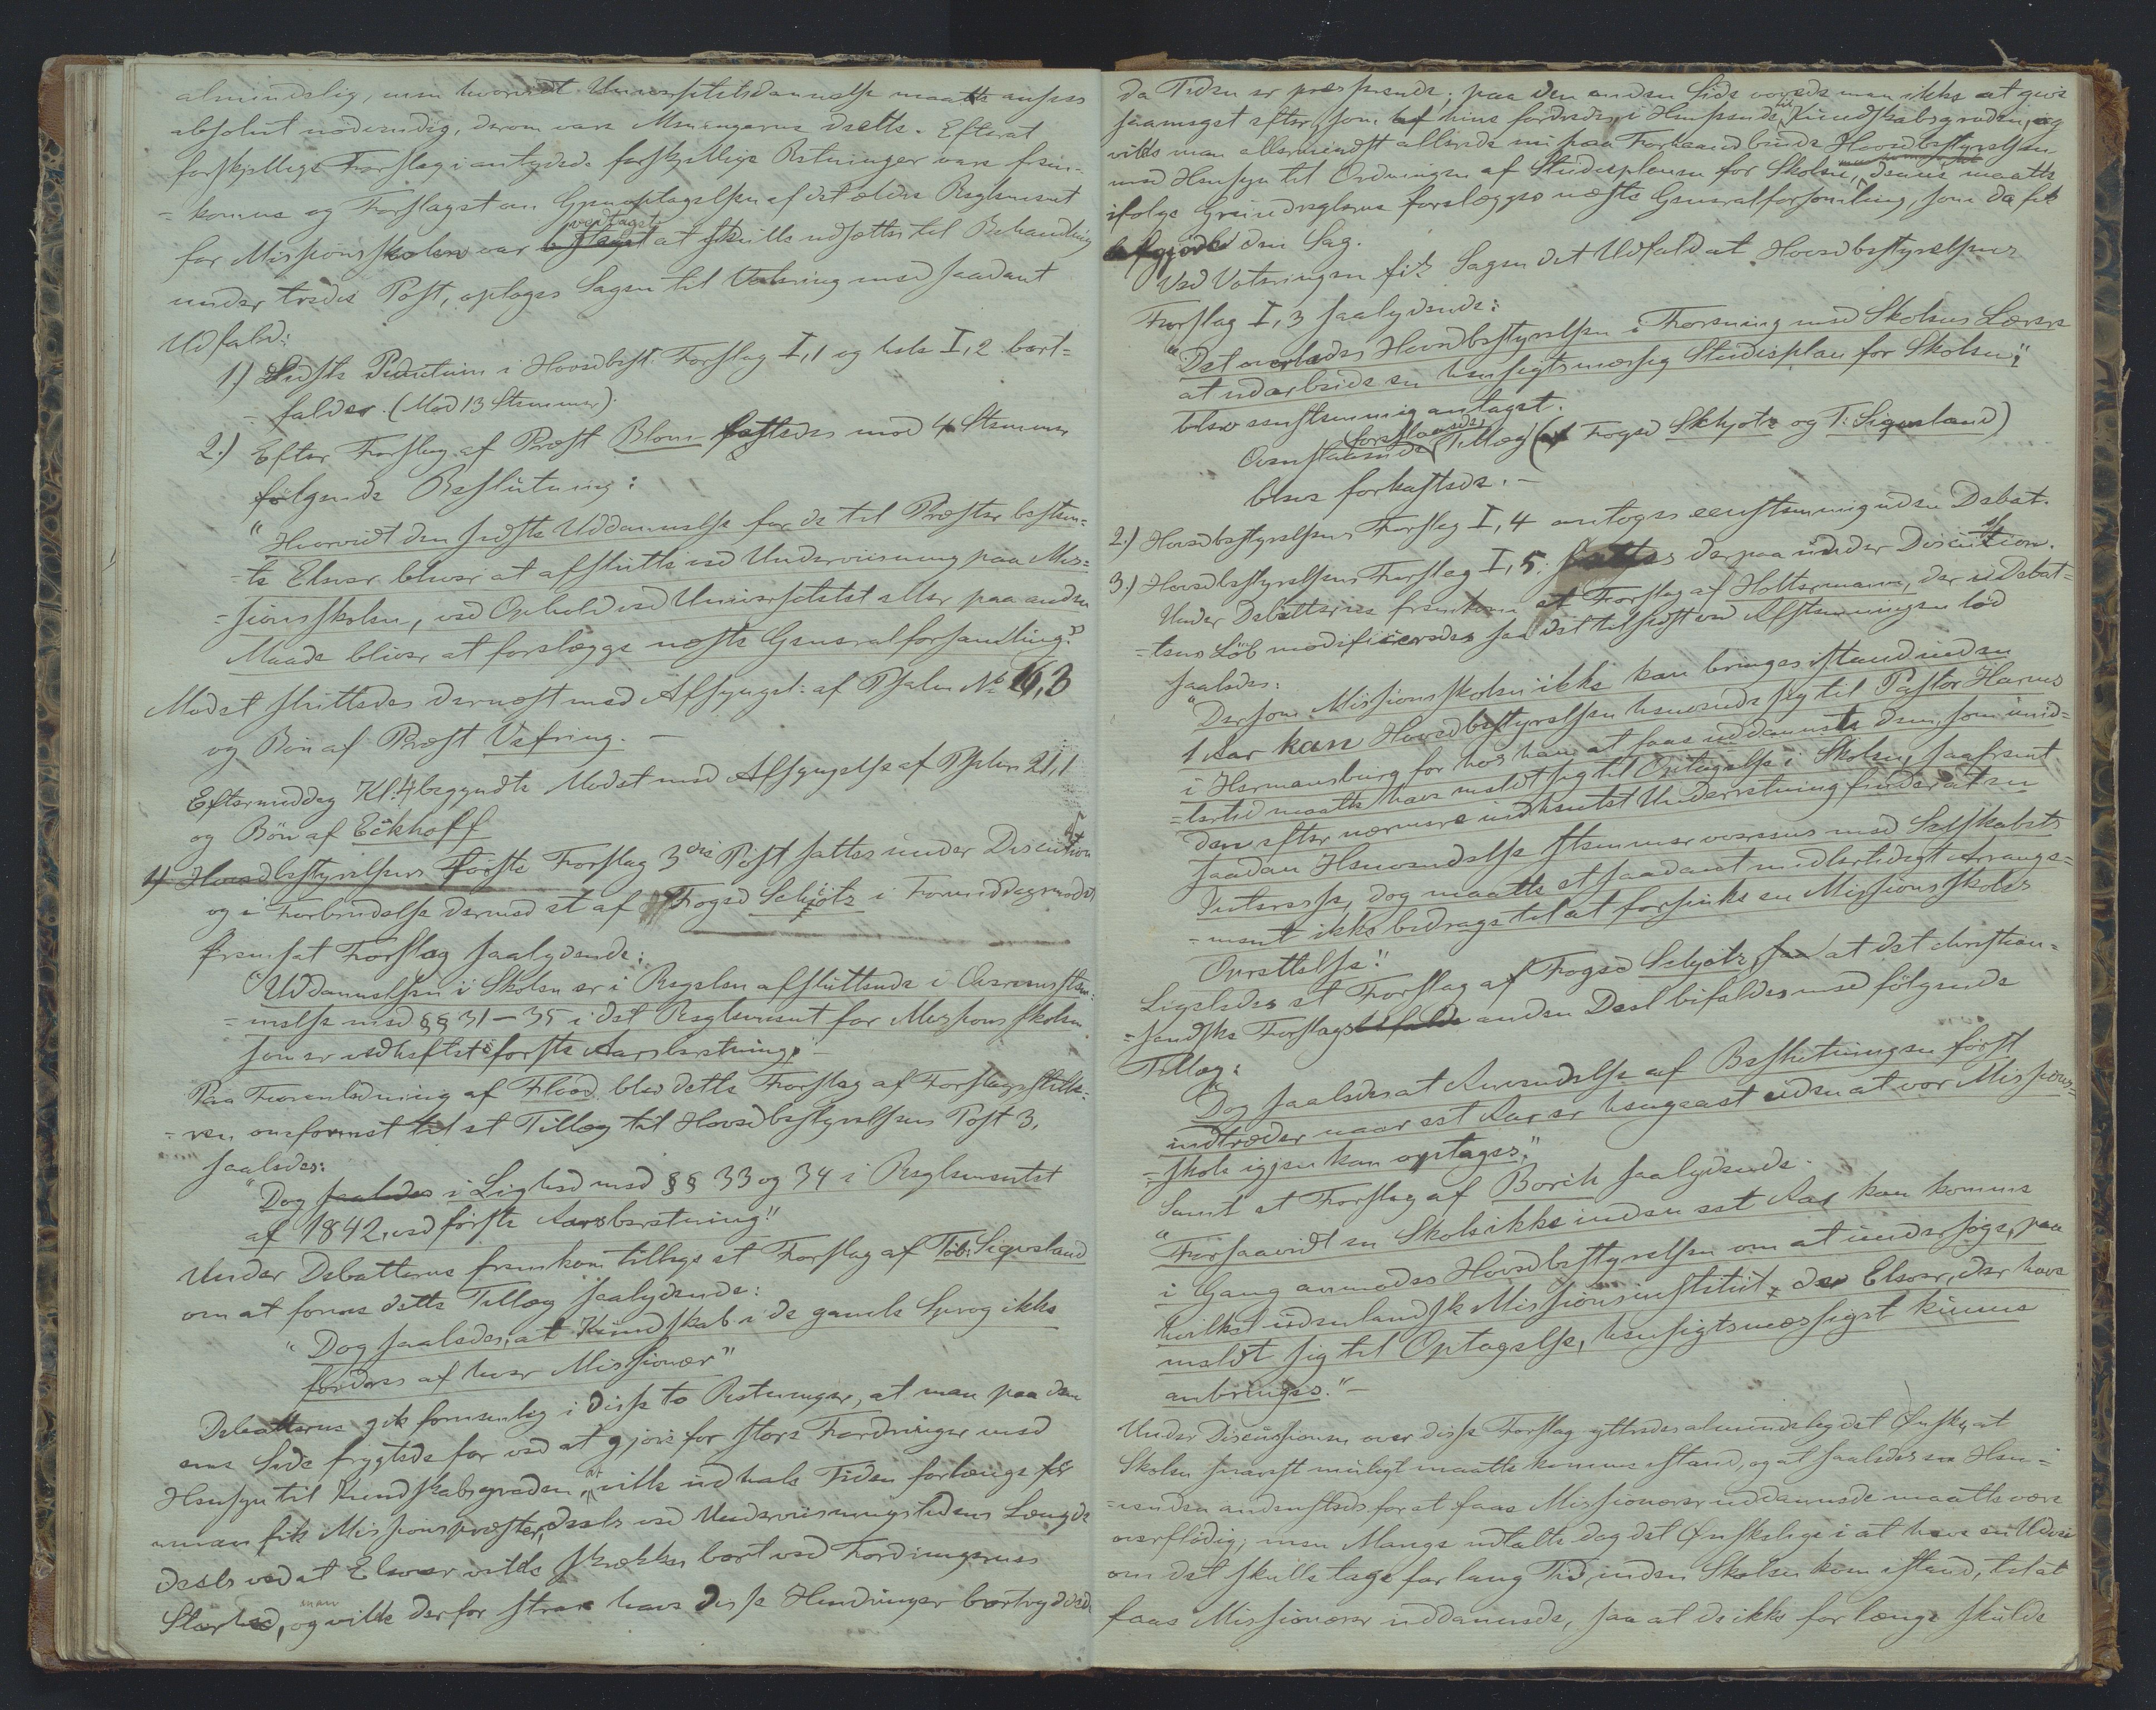 almindelig, men hvorvidt Universitetsdannelse maatte ansees
absolut nødvendig, derom vare Meningerne deelte. Efterat
forskjellige Forslag i antydede forskjellige Retninger vare frem-
=komne og Forslaget om Gjenoptagelsen af det ældre Reglement
vedtaget
for Missionsskolen var at skulle udsættes til Behandling
under tredie Post, optoges Sagen til Votering med saadant
Udfald:
1.) Sidste Punctum i Hovedbest. Forslag I,1 og hele I,2 bort=
falder. (Mod 13 Stemmer).
2.) Efter Forslag af Præst Blom fattedes mod 4 Stemmer
følgende Beslutning:
"Hvorvidt den sidste Uddannelse for de til Præster bestem-
=te Elever bliver at afslutte ved Underviisning paa Mis=
=sionsskolen, ved Ophold ved Universitetet eller paa anden
Maade bliver at forelægge næste Generalforsamling."
Mødet sluttedes dernæst med Afsynget: af Psalm No 16,3
og Bøn af Præst Vefring. –
Eftermiddag Kl. 4 begyndte Mødet med Afsyngelse af Psalm 21,1
og Bøn af Eckhoff
1) Hovedbestyrelsens første Forslag 3die Post sattes under Discution
og i Forbindelse dermed et af Foged Schjötz i Formiddagsmødet
fremsat Forslag saalydende:
"Uddannelsen i Skolen er i Regelen afsluttende i Overeensstem-
=melse med §§ 31–35 i det Reglement for Missionsskolen
som er vedheftet første Aarsberetning." –
Paa Foranledning af Flood blev dette Forslag af Forslagsstille-
=ren omformet til et Tillæg til Hovedbestyrelsens Post 3,
saaledes:
"Dog saaledes i Lighed med §§ 33 og 34 i Reglementet
af 1842, ved første Aarsberetning."
Under Debatterne fremkom tillige et Forslag af Tob: Sigvesland
om at forme dette Tillæg saalydende:
"Dog saaledes, at Kundskab i de gamle Sprog ikke
fordres af hver Missionær"
Debatterne gik fornemlig i disse to Retninger, at man paa den
ene Side frygtede for ved at gjøre for store Fordringer med
at
Hensyn til Kundskabsgraden, ville udhale Tiden forlænge før
man fik Missionspræster, deels ved Underviisningstidens Længde
deels ved at Elever vilde skrækkes bort ved Fordringernes
man
Storhed, og vilde derfor strax have disse Hindringer bortryddede
da Tiden er presserende; paa den anden Side vovede man ikke at give
saameget efter, som af hine fordredes, i Henseende til Kundskabsgraden, og
vilde man allermindst allerede nu paa Forhaand binde Hovedbestyrelsen
med Hensyn til Ordningen af Studieplanen for Skolen, denne maatte
ifølge Grundreglerne forelægges næste Generalforsamling, som da fik
afgjøre den Sag.
Ved Voteringen fik Sagen det Udfald at Hovedbestyrelsens
Forslag I,3 saalydende:
"Det overlades Hovedbestyrelsen i Forening med Skolens Lærere
at udarbeide en hensigtsmæssig Studieplan for Skolen;"
blev eenstemmig antaget.
foreslaaede
Ovenstaaende Tillæg (af Foged Schjøtz og T: Sigvesland)
bleve forkastede. –
2.) Hovedbestyrelsens Forslag I,4 antoges eenstemmig uden Debat.
3.) Hovedbestyrelsens Forslag I,5. sattes derpaa under Discution.
Under Debatterne fremkom et Forslag af Holtermann, der i Debat=
=tens Løb modificeredes saa det tilsidst ved Afstemningen lød
saaledes:
"Dersom Missionsskolen ikke kan bringes istand inden
1 Aar kan Hovedbestyrelsen henvende sig til Pastor Harms
i Hermansburg for hos ham at faae uddannede dem, som imid=
=lertid maatte have meldt sig til Optagelse i Skolen, saafremt
den efter nærmere indhentet Underretning finder at en
saadan Henvendelse stemmer overeens med Selskabets
Interesse, dog maatte et saadant midlertidigt Arrange=
=ment ikke bidrage til at forsinke en Missionsskoles
Oprettelse."
Ligeledes et Forslag af Foged Schjøtz, at det christian-
=sandske Forslags anden Deel bifaldes med følgende
Tillæg:
"Dog saaledes at Anvendelse af Beslutningen først
indtræder naar eet Aar er hengaaet uden at vor Missions=
=skole igjen kan optages."
Samt et Forslag af Borch saalydende.
"Forsaavidt en Skole ikke inden eet Aar kan komme
i Gang anmodes Hovedbestyrelsen om at undersøge, paa
hvilket udenlandsk Missionsinstitut, de Elever, der have
meldt sig til Optagelse, hensigtsmæssigst kunne
anbringes." –
Under Discussionen over disse Forslag yttredes almindelig det Ønske, at
Skolen snarest muligt maatte komme istand, og at saaledes en Hen=
=venden andensteds for at faae Missionærer uddannede maatte være
overflødig; men Mange udtalte dog det Ønskelige i at have en Udvei
om det skulle tage for lang Tid, inden Skolen kom istand, til at
faae Missionærer uddannede, saa at de ikke for længe skulde